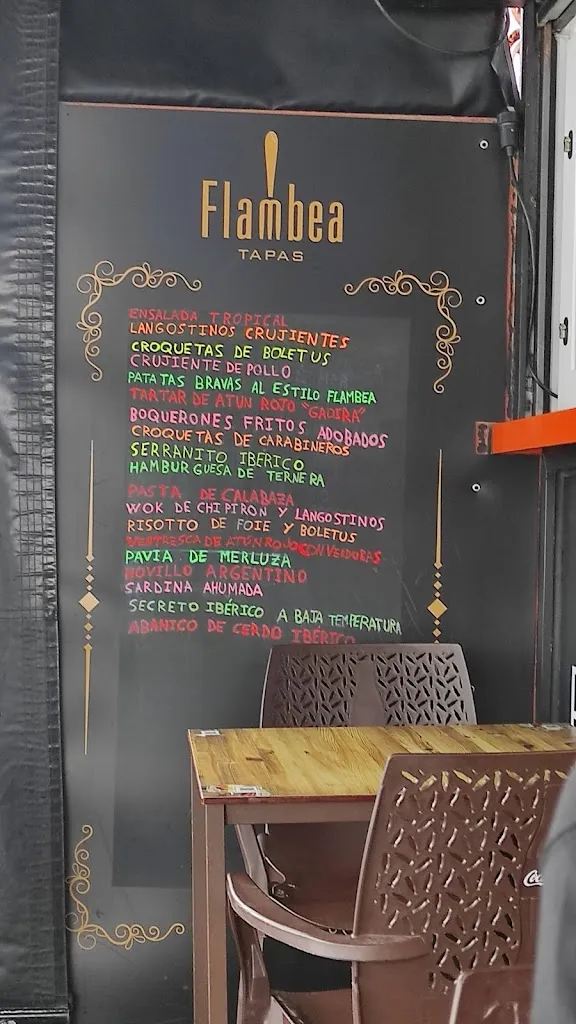 Flambea
TAPAS
ENSALADA TROPICAL
LANGOSTINOS CRUJIENTES
CROQUETAS DE BOLETUS
CRUJIENTE DE POLLO
PATATAS BRAVAS AL ESTILO FLAMBEA
TARTAR DE ATUN ROJO "GADIRA"
BOQUERONES FRITOS ADOBADOS
CROQUETAS DE CARABINEROS
SERRANITO IBERICO
HAMBURGUESA DE TERNERA
PASTA DE CALABAZA
WOK DE CHIPIRON Y LANGOSTINOS
RISOTTO DE FOIE Y BOLETUS
VENTRESCA DE ATUN ROJO CON VERDURAS
PAVIA DE MERLUZA
NOVILLO ARGENTINO
SARDINA AHUMADA
SECRETO IBÉRICO A BAJA TEMPERATURA
ABANICO DE CERDO IBÉRICO